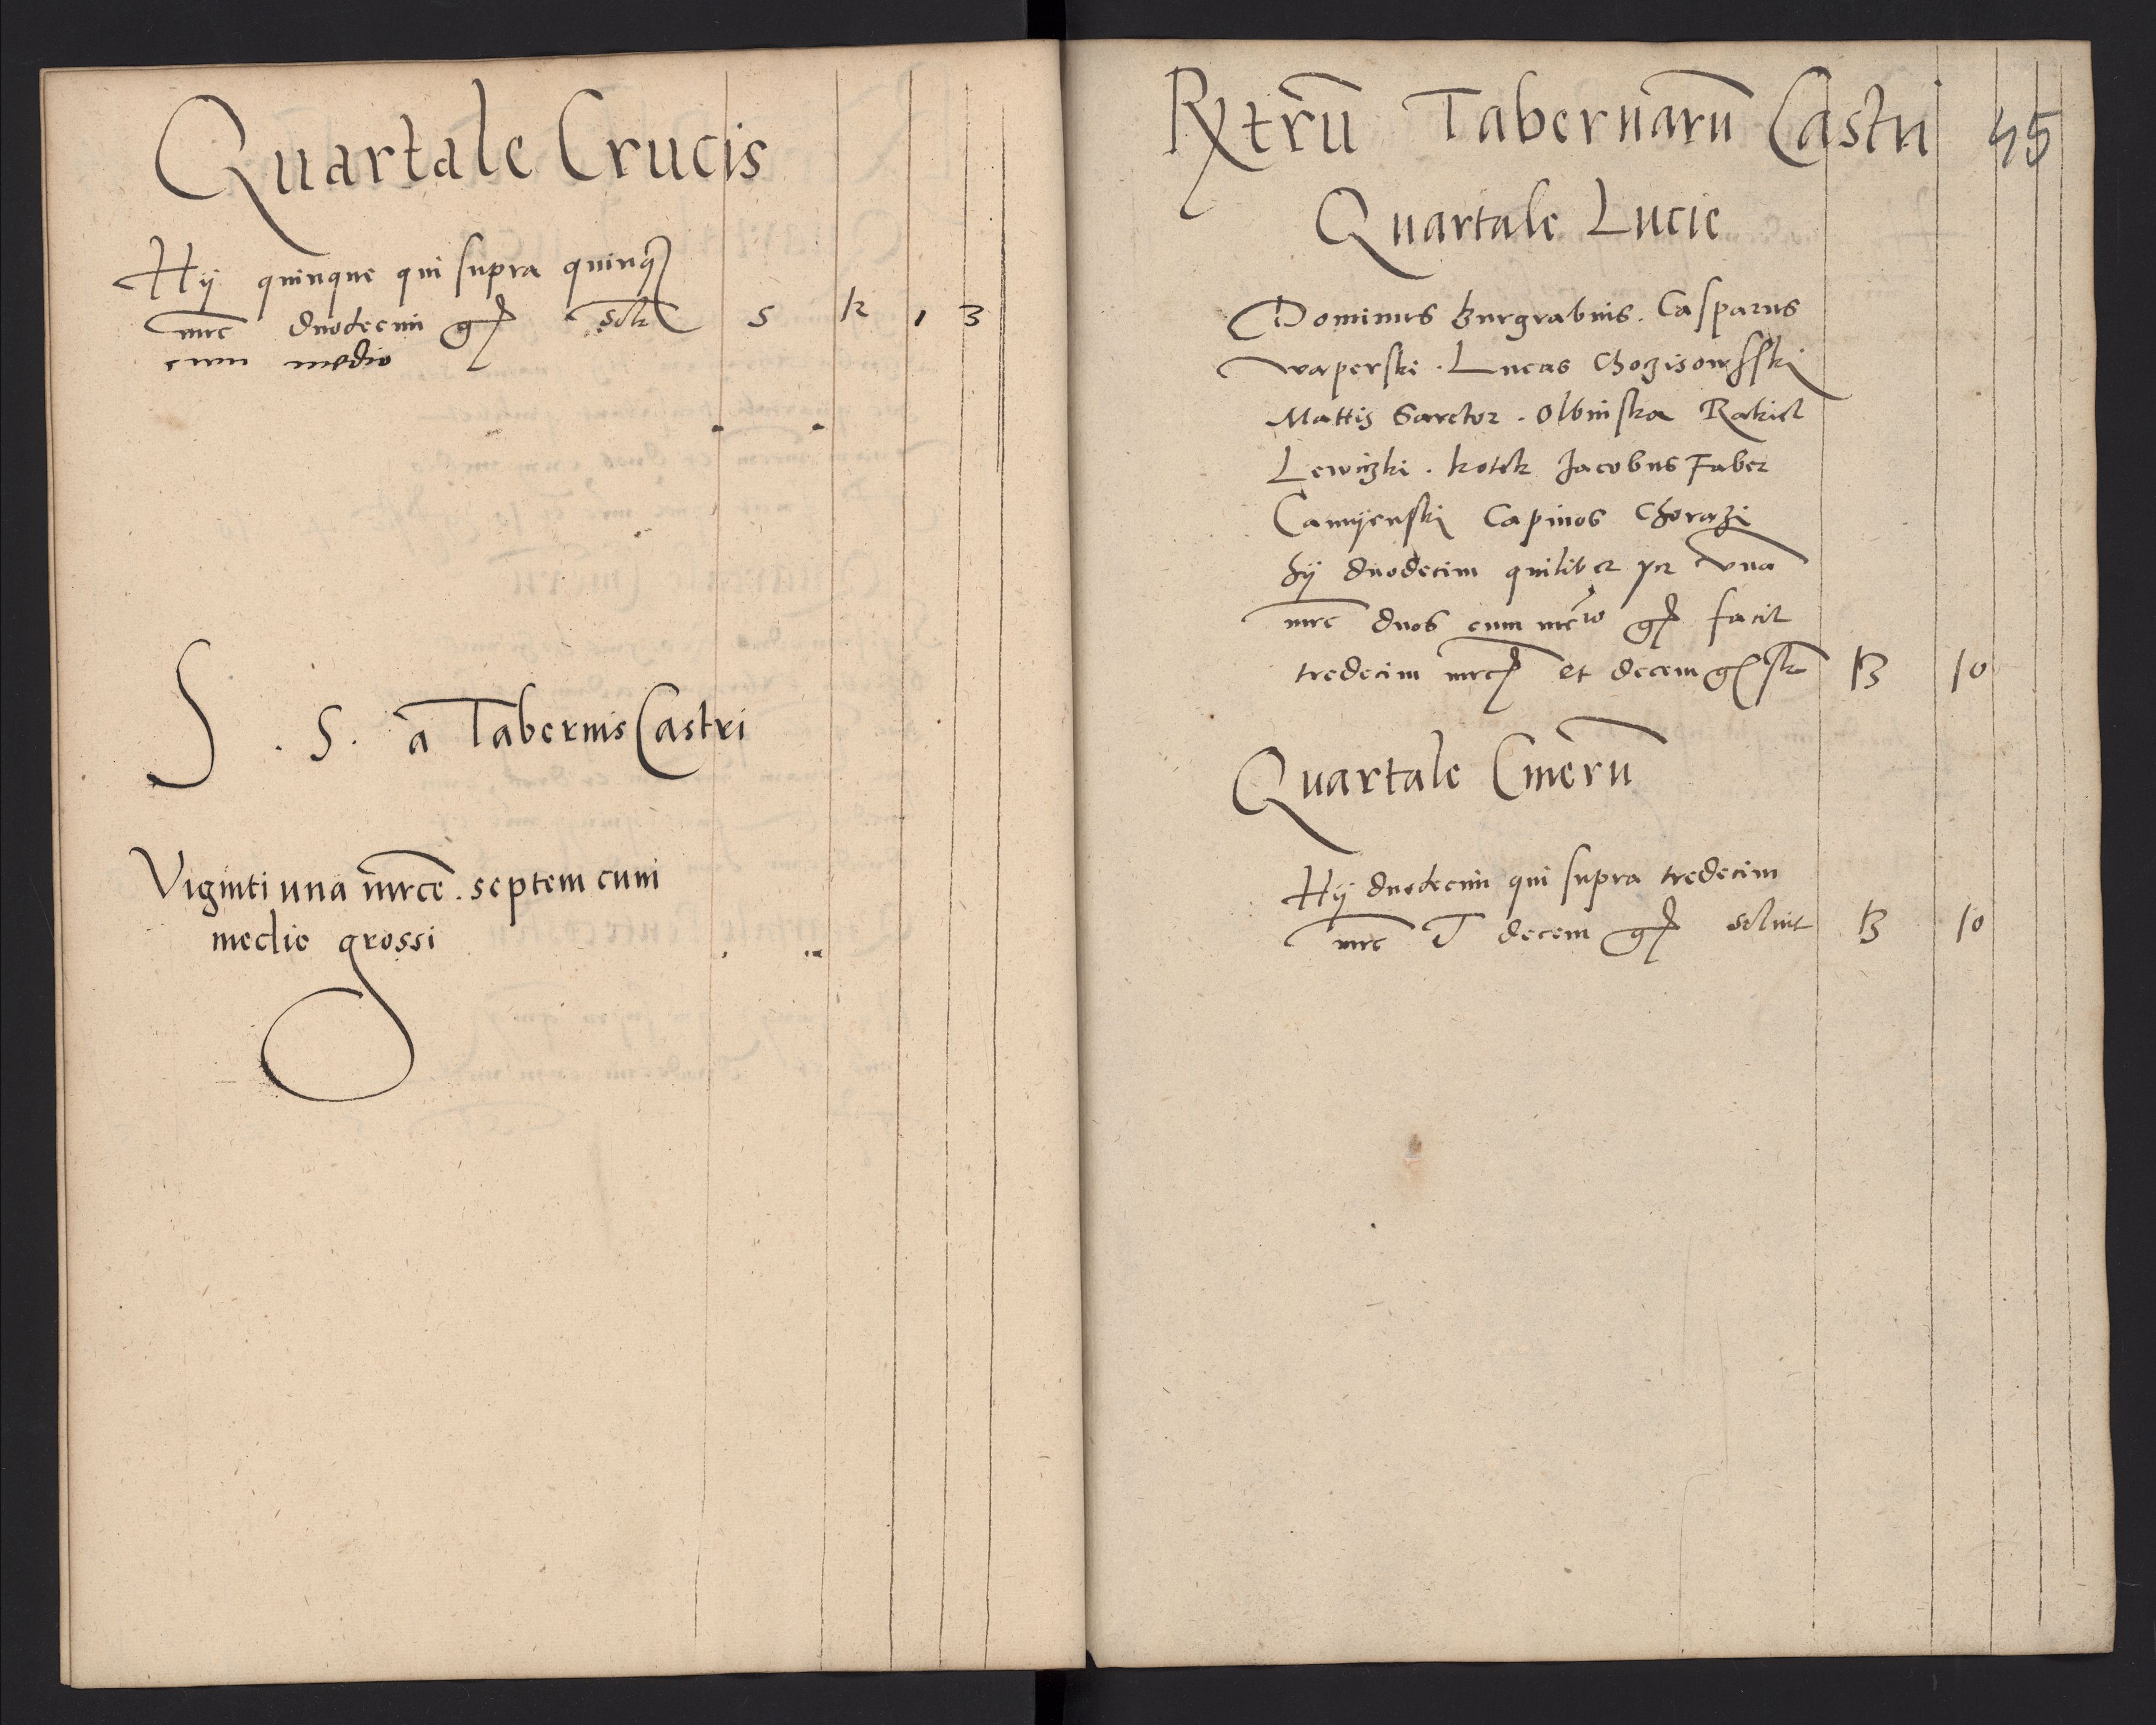 Quartale Crucis
Hij quinque qui supra quinq
mrc duodecim g solt 5 12 1 3
cum medio
S . S . a Tabernis Castri
Viginti una mrce . septem cum
medio grossi
Rxtrū Tabernarū Castri 45
Quartale Lucie
Dominus burgrabius . Casparus
waperski . Lucas
Mattis Sarctor . Olbinska Rakiel
Lewiczki . kotek Jacobus Faber
Camyenski Capinos Chorazi
hij duodecim quilibet per vna
mrc duos cum me͞io g facit
tredecim mrc et decem g 13 10
Quartale Cinerū
Hij duodecim qui supra tredecim
mrc et decem g soluit 13 10